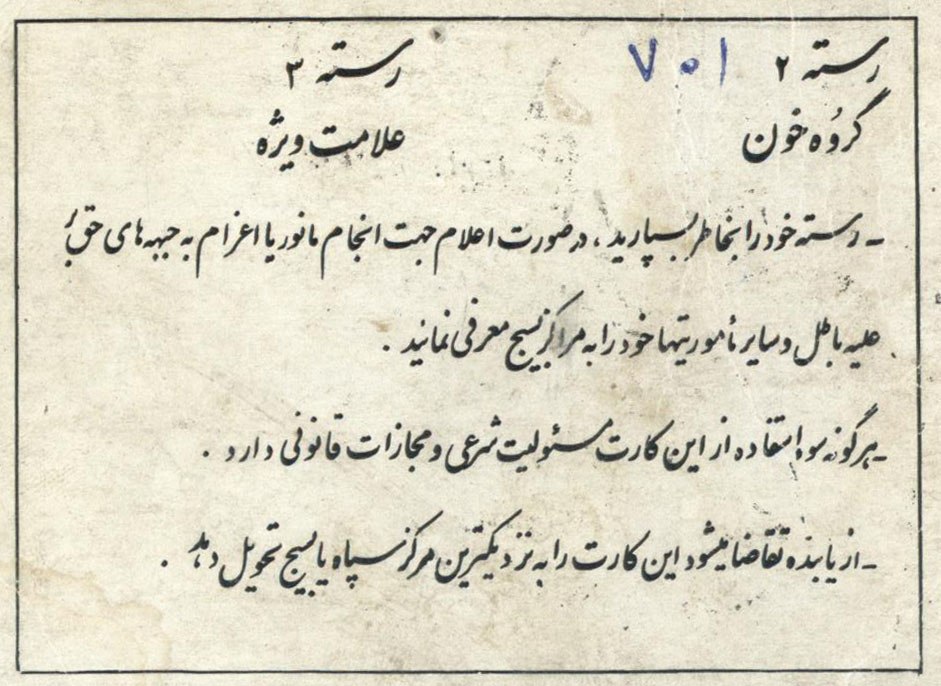 رسته ۲ ۷۰۱ رسته ۳
گروه خون علامت ویژه
- رسته خود را بخاطر بسپارید، در صورت اعلام جهت انجام مانور یا اعزام به جبهه های حق بر
علیه باطل و سایر مأموریتها خود را به مراکز بسیج معرفی نمایند .
- هرگونه سوء استفاده از این کارت مسئولیت شرعی و مجازات قانونی دارد .
- از یابنده تقاضا میشود این کارت را به نزدیکترین مرکز سپاه یا بسیج تحویل دهد .